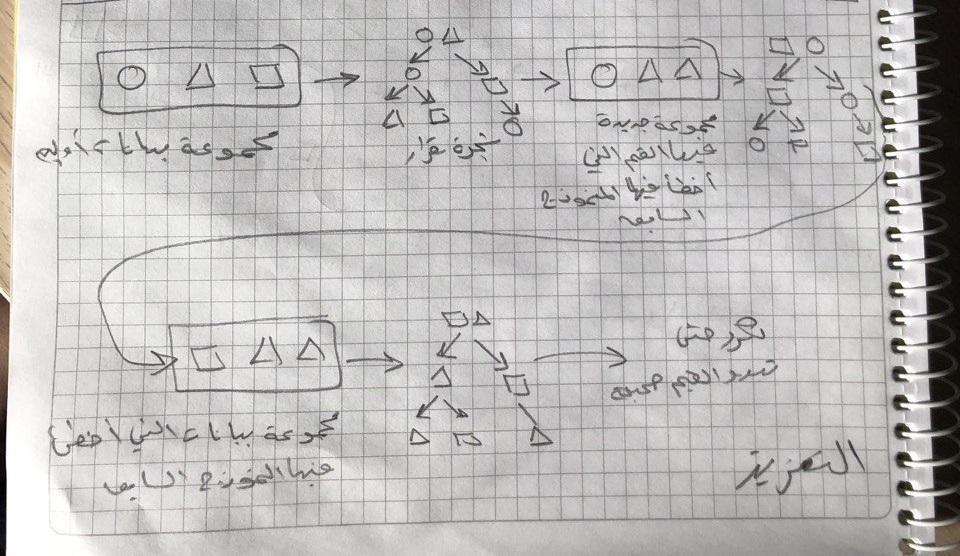 مجموعة بيانات أولية
شجرة قرار
مجموعة جديدة
فيها القيم التي
أخطأ فيها النموذج
السابق
مجموعة بيانات التي أخطأ
فيها النموذج السابق
نكرر حتى
القيم
التعزيز